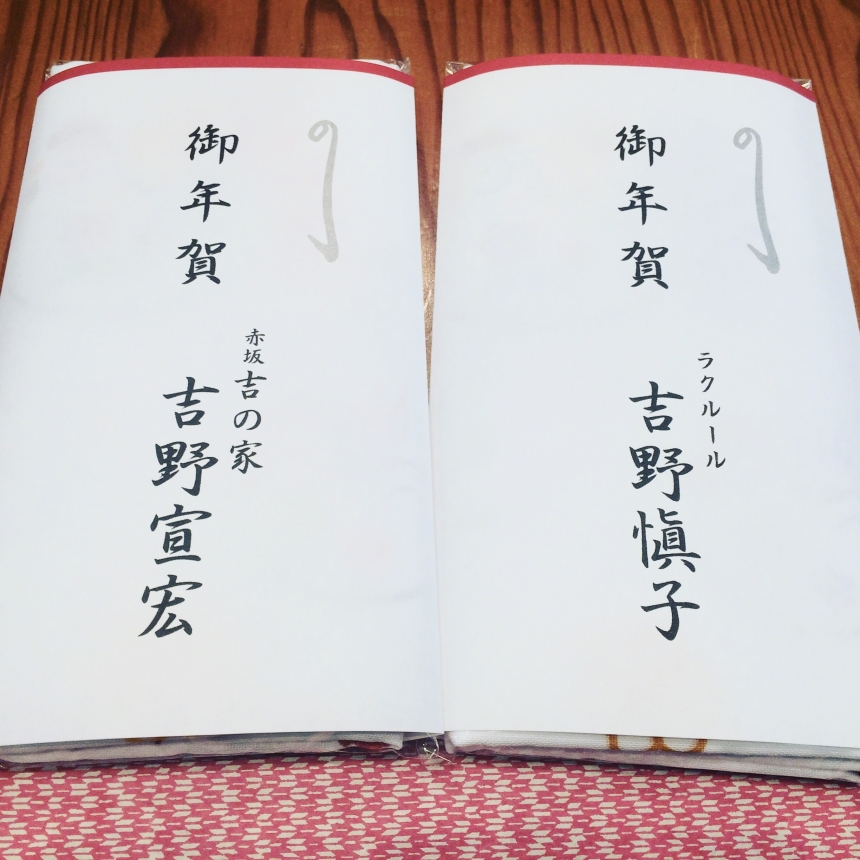 御年賀
赤坂吉の家
吉野宣宏
御年賀
ラクルール
吉野愼子